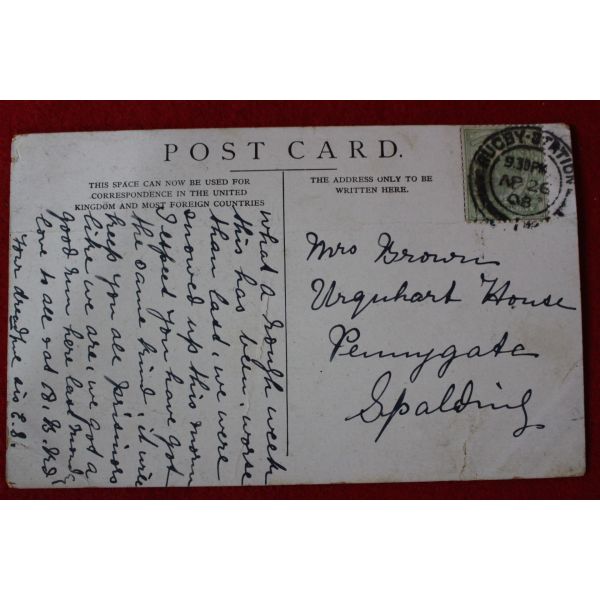 POST CARD.
THIS SPACE CAN NOW BE USED FOR
CORRESPONDENCE IN THE UNITED
KINGDOM AND MOST FOREIGN COUNTRIES
THE ADDRESS ONLY TO BE
WRITTEN HERE.
RUGBY-STATION
9.30PM
AP 26
08
Mrs Brown
Urquhart House
Pennygate
Spalding
What a rough week
this has been. worse
than last, we were
snowed up this morn
I expect you have got
the same kind, it will
keep you all prisinors
like we are, we got a
good run here last Mond
love to all at
Your sis E.S.